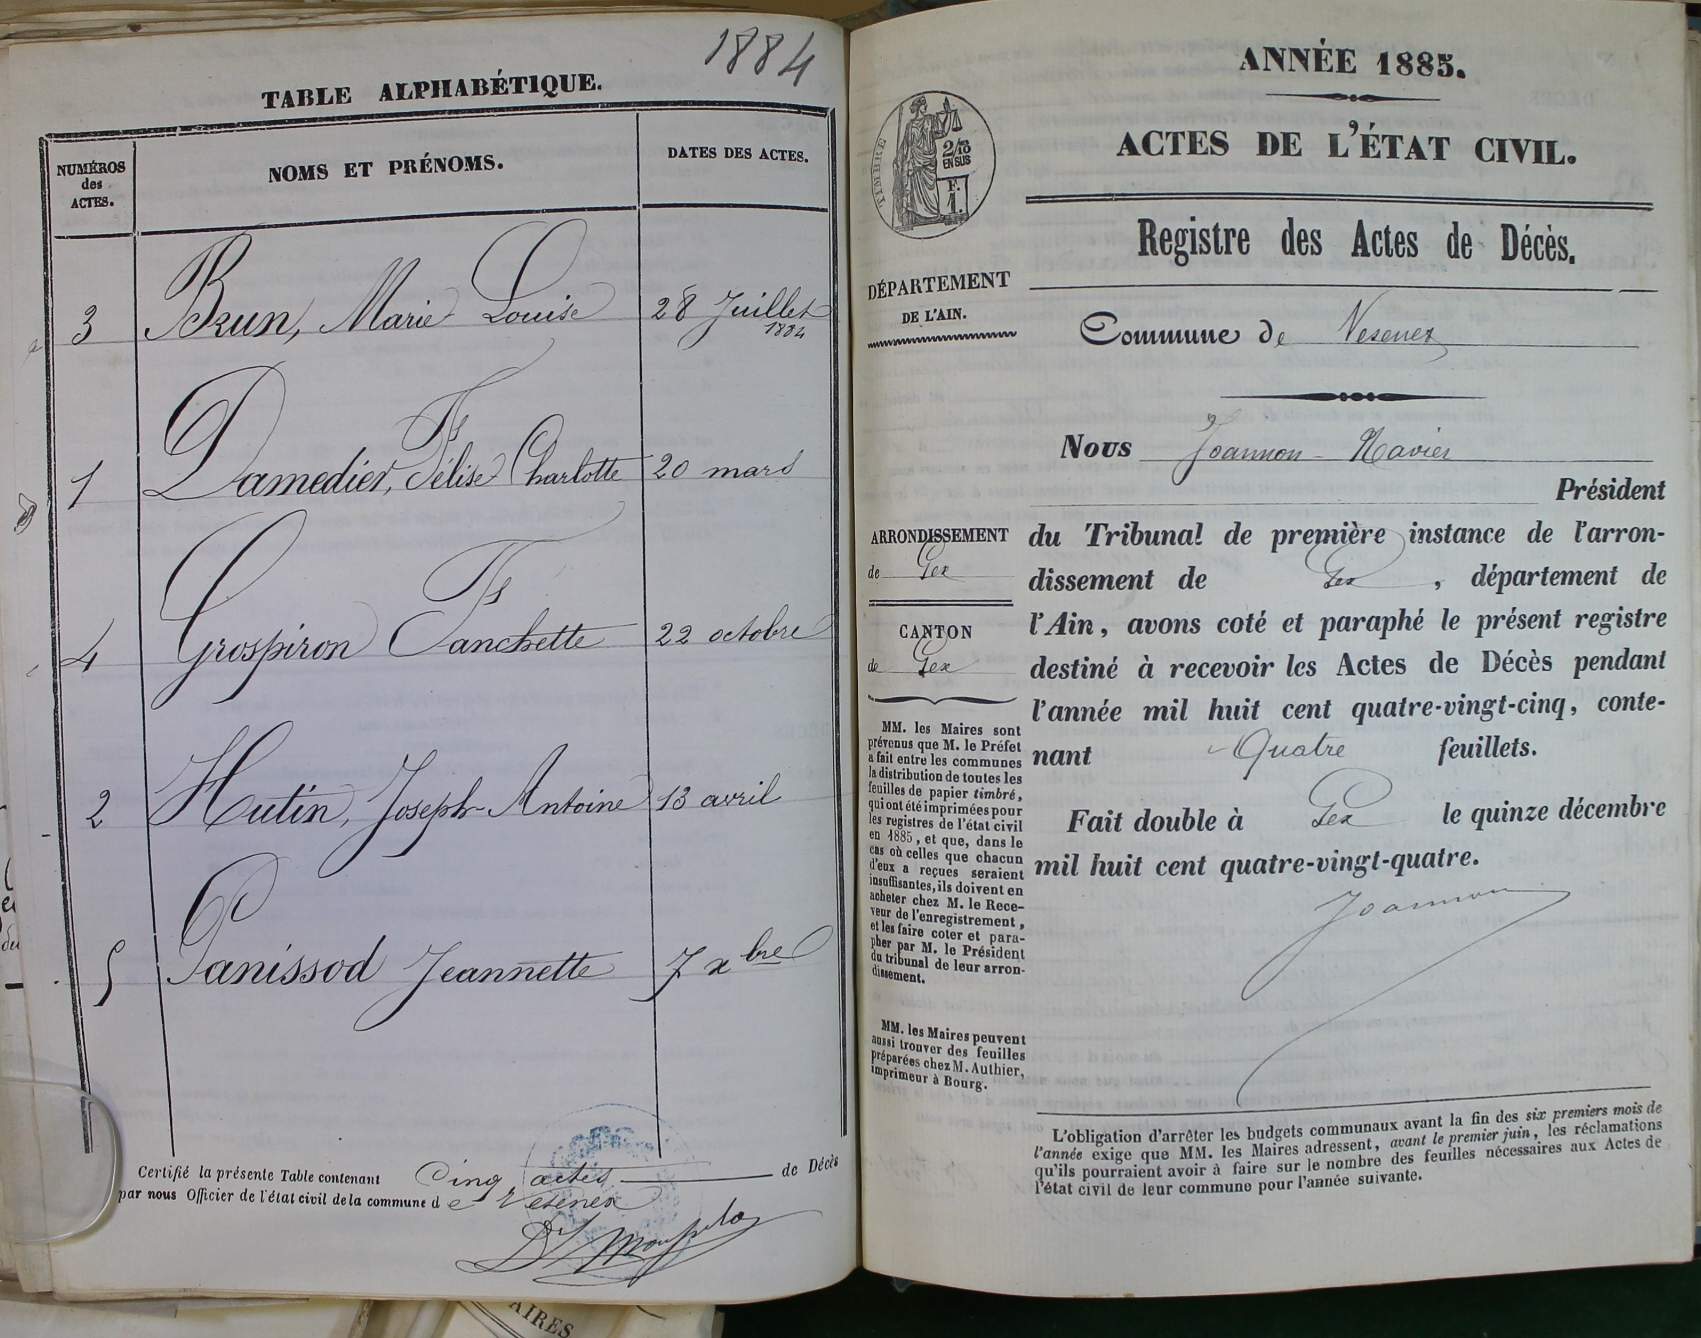 1884
TABLE ALPHABÉTIQUE.
NUMÉROS
des
ACTES.
NOMS ET PRÉNOMS.
DATES DES ACTES.
3 Brun, Marie Louise 28 Juillet
1884
1 Damedier, Félise Charlotte 20 mars
4 Grospiron Fanchette 22 octobre
2 Hutin, Joseph Antoine 13 avril
5 Panissod Jeannette 7 xbre
Certifié la présente Table contenant Cinq actes de Décès
par nous Officier de l'état civil de la commune de Vesenex
ANNÉE 1885.
ACTES DE L'ÉTAT CIVIL.
TIMBRE
2/10
EN SUS
F.
1.
Registre des Actes de Décès.
DÉPARTEMENT
DE L'AIN.
Commune de Vesenex
Nous Joannon Xavier
Président
ARRONDISSEMENT
de Gex
CANTON
de Gex
du Tribunal de première instance de l'arron-
dissement de Gex, département de
l'Ain, avons coté et paraphé le présent registre
destiné à recevoir les Actes de Décès pendant
l'année mil huit cent quatre-vingt-cinq, conte-
nant Quatre feuillets.
Fait double à Gex le quinze décembre
mil huit cent quatre-vingt-quatre.
Joannon
MM. les Maires sont
prévenus que M. le Préfet
a fait entre les communes
la distribution de toutes les
feuilles de papier timbré,
qui ont été imprimées pour
les registres de l'état civil
en 1885, et que, dans le
cas où celles que chacun
d'eux a reçues seraient
insuffisantes, ils doivent en
acheter chez M. le Rece-
veur de l'enregistrement,
et les faire coter et para-
pher par M. le Président
du tribunal de leur arron-
dissement.
MM. les Maires peuvent
aussi trouver des feuilles
préparées chez M. Authier,
imprimeur à Bourg.
L'obligation d'arrêter les budgets communaux avant la fin des six premiers mois de
l'année exige que MM. les Maires adressent, avant le premier juin, les réclamations
qu'ils pourraient avoir à faire sur le nombre des feuilles nécessaires aux Actes de
l'état civil de leur commune pour l'année suivante.
AIRES